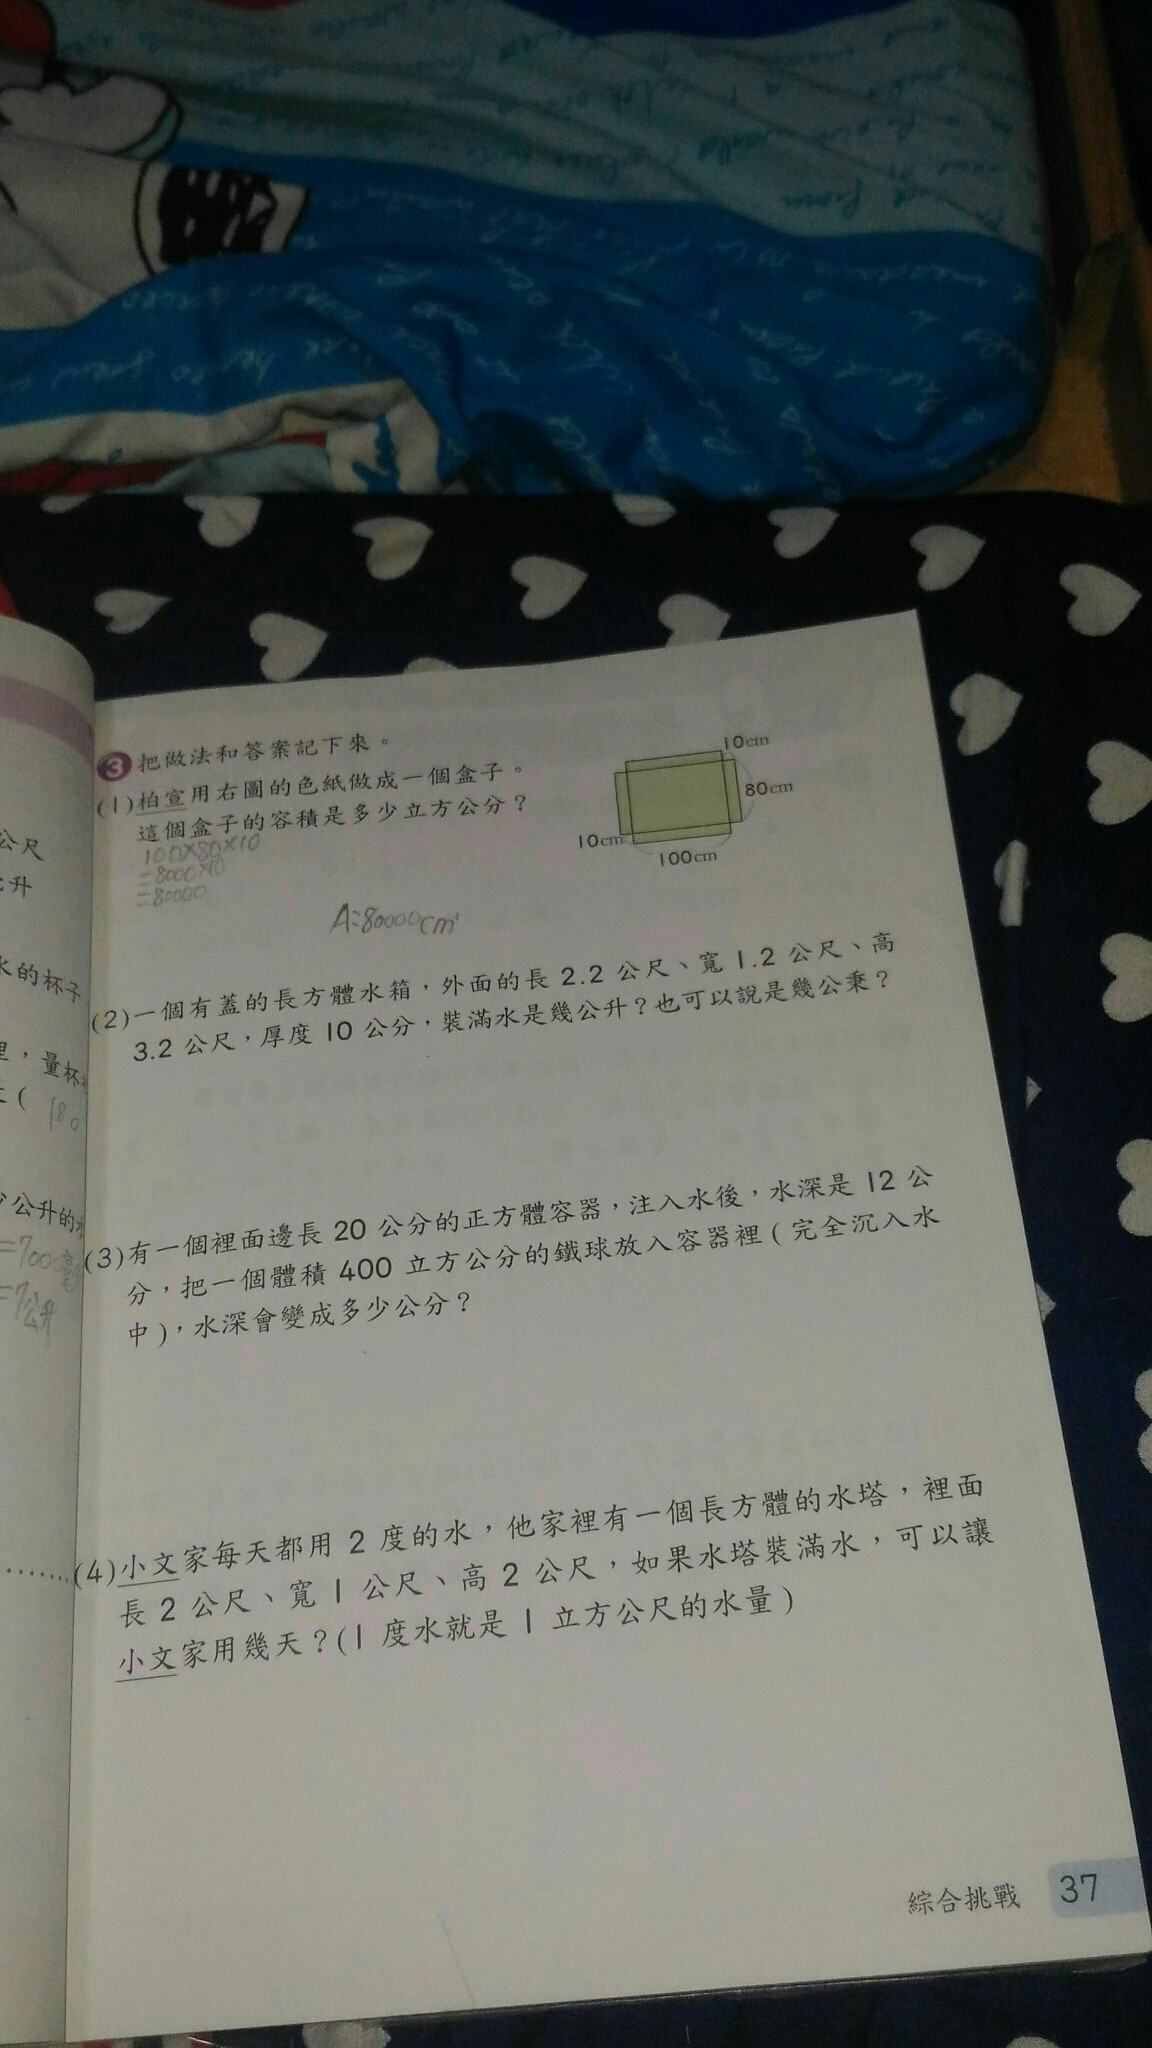 3 把做法和答案記下來。
(1)柏宣用右圖的色紙做成一個盒子。
這個盒子的容積是多少立方公分?
100×80×10
=8000×10
=80000
A=80000cm³
10cm
80cm
10cm
100cm
(2)一個有蓋的長方體水箱,外面的長 2.2 公尺、寬 1.2 公尺、高
3.2 公尺,厚度 10 公分,裝滿水是幾公升?也可以說是幾公秉?
(3)有一個裡面邊長 20 公分的正方體容器,注入水後,水深是 12 公
分,把一個體積 400 立方公分的鐵球放入容器裡(完全沉入水
中),水深會變成多少公分?
(4)小文家每天都用 2 度的水,他家裡有一個長方體的水塔,裡面
長 2 公尺、寬 1 公尺、高 2 公尺,如果水塔裝滿水,可以讓
小文家用幾天?(1 度水就是 1 立方公尺的水量)
綜合挑戰 37
公尺
升
水的杯子
,量杯
( 180
公升的
=7000毫
=7公升